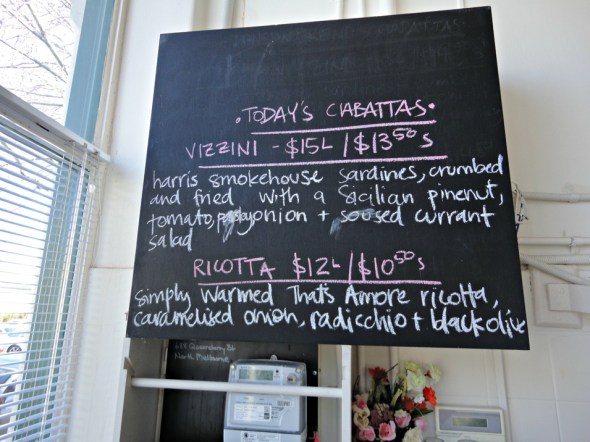 •TODAY'S CIABATTAS•
VIZZINI - $15L / $13⁵⁰ s
harris smokehouse sardines, crumbed
and fried with a Sicilian pinenut,
tomato, onion + soused currant
salad
RICOTTA $12L / $10⁵⁰ s
Simply warmed That's Amore ricotta,
caramelised onion, radicchio + black olive
North Melbourne